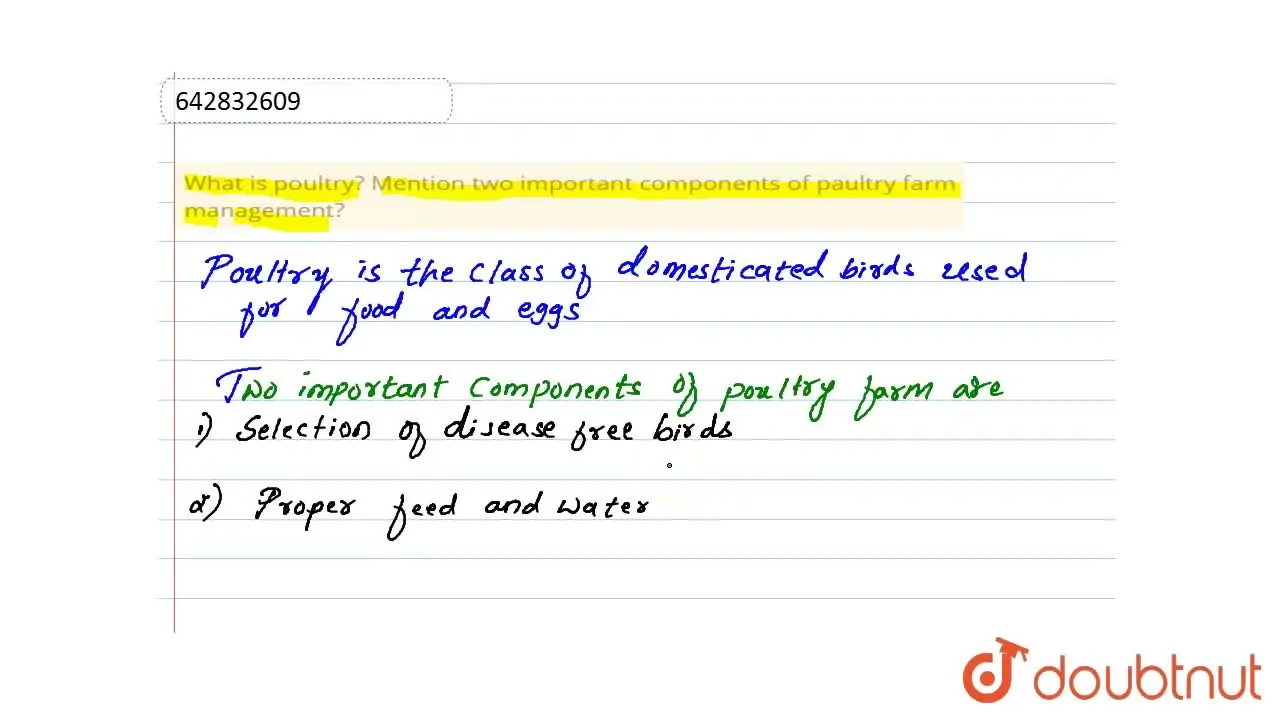 642832609
What is poultry? Mention two important components of paultry farm
management?
Poultry is the class of domesticated birds used
for food and eggs
Two important components of poultry farm are
1) Selection of disease free birds
2) Proper feed and water
doubtnut